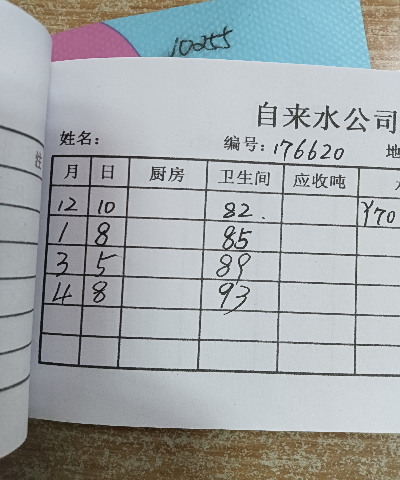 10255
自来水公司
姓名: 编号: 176620 地
月 日 厨房 卫生间 应收吨
12 10 82. ¥70
1 8 85
3 5 89
4 8 93